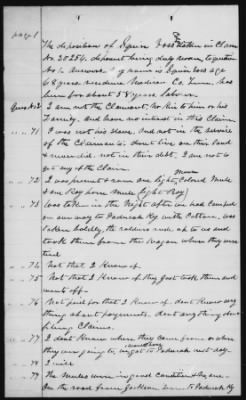 page 1
The deposition of Squire Ross taken in Claim
No 20254, deponent being duly sworn, to question
No 1 Answer My name is Squire Ross age
68 years residence Madison Co, Tenn, has
been for about 58 years labor
Ques No 2 I am not the Claimant, No Kin to him or his
Family, and have no interest in this Claim
" " 71 I was not his slave, And not in the service
of the Claimant; don't live on his land
& never did. not in his debt, I am not to
get any of the Claim.
" " 72 I was present & saw one light Colored Mule
& one Bay horse mule light Bay
" " 73 Was taken in the Night after we had Camped
on our way to Paducah Ky with Cotton. was
taken boldly, the soldiers rode up to us and
took them from the Wagon where they were
tied
" " 74 Not that I Know of.
" " 75 Not that I Know of they just took them and
went off-
" " 76 Not paid for that I Know of dont Know any
thing about payments. dont any thing about
filing Claims.
" " 77 I dont Know where they came from or where
they were going to, we got to Paducah next day.
" " 78 I
" " 79 The mules were in good condition
On the road from Jackson Tenn to Paducah Ky